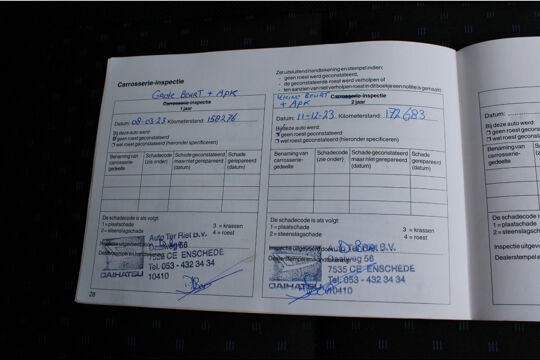 Carrosserie-inspectie
Grote Beurt + APK
Carrosserie-inspectie
1 jaar
Datum: 08-03-23 Kilometerstand: 158276
Bij deze auto werd:
geen roest geconstateerd
wel roest geconstateerd (hieronder specificeren)
Benaming van carrosserie-gedeelte
Schadecode (zie onder)
Schade geconstateerd maar niet gerepareerd (datum)
Schade gerepareerd (datum)
De schadecode is als volgt:
1 = plaatschade 3 = krassen
2 = steenslagschade 4 = roest
Inspectie uitgevoerd door
Auto Ter Riel B.V.
Daalweg 58
7535 CE ENSCHEDE
Tel. 053 - 432 34 34
10410
DAIHATSU
28
Zet uitsluitend handtekening en stempel indien:
- geen roest werd geconstateerd,
- de geconstateerde roest werd verholpen of
- ten aanzien van niet verholpen roest in dit boekje een notitie is gemaakt.
Kleine Beurt
+ APK
Carrosserie-inspectie
2 jaar
Datum: 11-12-23 Kilometerstand: 172683
Bij deze auto werd:
geen roest geconstateerd
wel roest geconstateerd (hieronder specificeren)
Benaming van carrosserie-gedeelte
Schadecode (zie onder)
Schade geconstateerd maar niet gerepareerd (datum)
Schade gerepareerd (datum)
De schadecode is als volgt:
1 = plaatschade 3 = krassen
2 = steenslagschade 4 = roest
Inspectie uitgevoerd door
B.V.
Daalweg 58
7535 CE ENSCHEDE
Tel. 053 - 432 34 34
10410
DAIHATSU
Datum:
Bij deze auto werd:
geen roest
wel roest
Benaming van carrosserie-gedeelte
De schadecode is
1 = plaatschade
2 = steenslagschade
Inspectie uitgevoerd
Dealerstempel